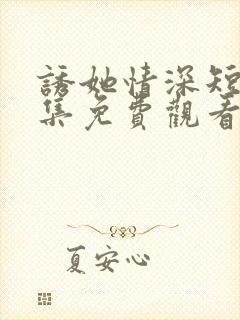 誘她情深短
集免費觀看
夏安心